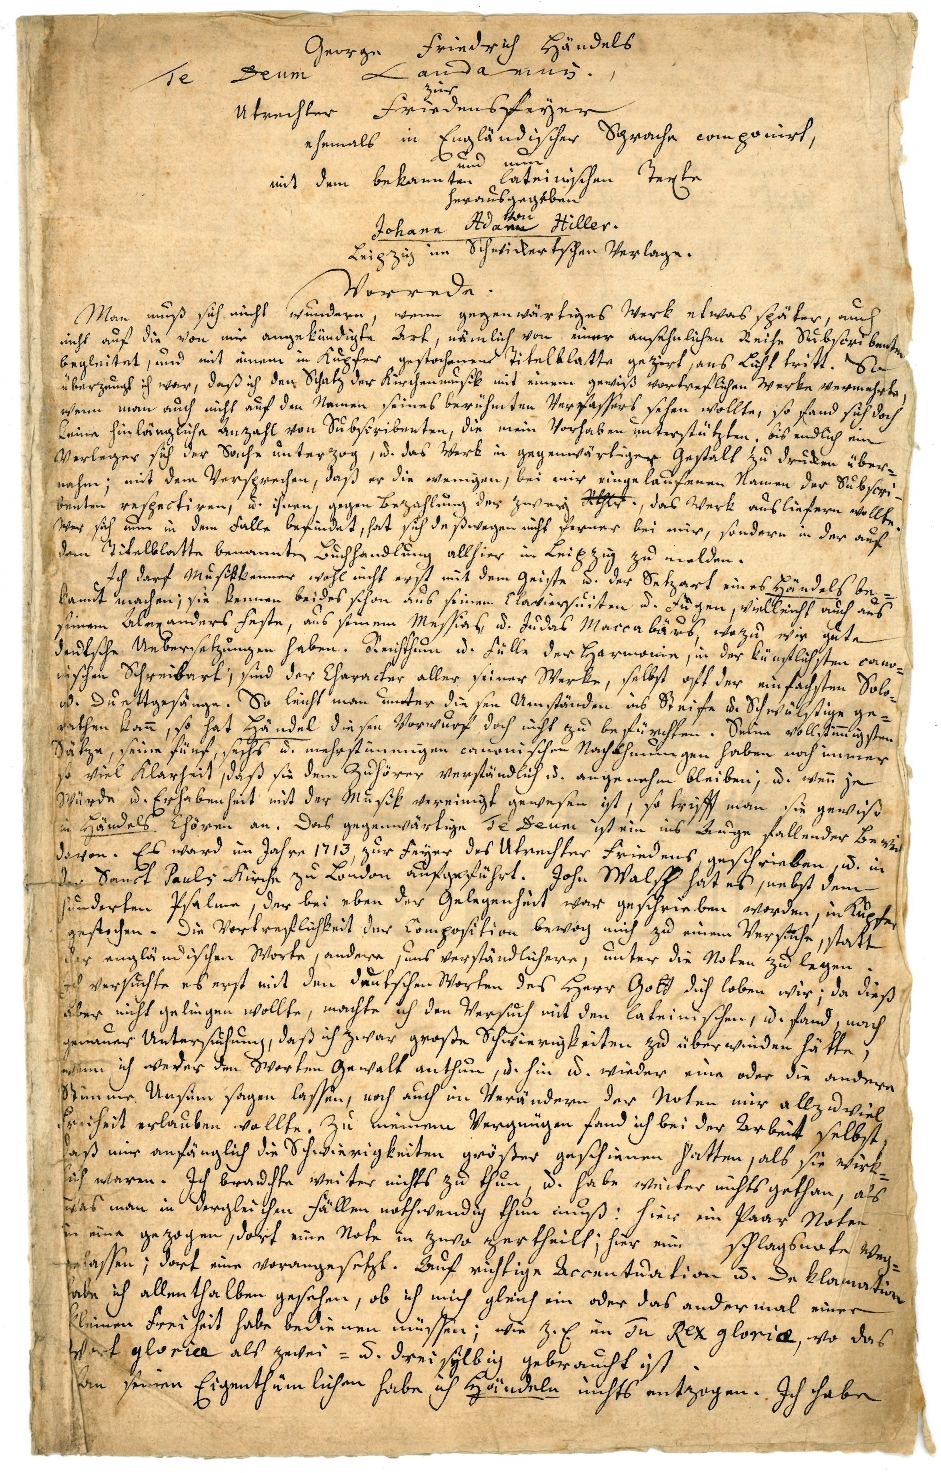 George Friedrich Händels
Te Deum Laudamus.
zur
Utrechter Friedensfeyer
ehemals in Engländischer Sprache componirt,
und nun
mit dem bekannten lateinischen Texte
herausgegeben
von
Johann Adam Hiller.
Leipzig im Schwickertschen Verlage.
Vorrede.
Man muß sich nicht wundern, wenn gegenwärtiges Werk etwas später, auch
nicht auf die von mir angekündigte Art, nämlich von einer ansehnlichen Reihe Subscribenten
begleitet, und mit einem in Kupfer gestochenen Titelblatte geziert, ans Licht tritt. So
überzeugt ich war, daß ich den Schatz der Kirchenmusik mit einem gewiß vortreflichen Werke vermehrte,
wenn man auch nicht auf den Namen seines berühmten Verfassers sehen wollte, so fand sich doch
keine hinlängliche Anzahl von Subscribenten, die mein Vorhaben unterstützten. bis endlich ein
Verleger sich der Sache unterzog, u. das Werk in gegenwärtiger Gestalt zu drucken über=
nahm; mit dem Versprechen, daß er die wenigen, bei mir eingelaufenen Namen der Subscri-
benten respectiren, u. ihnen, gegen Bezahlung der zwey , das Werk ausliefern wollte.
Wer sich nun in dem Falle befindet, hat sich deswegen nicht ferner bei mir, sondern in der auf
dem Titelblatte benannten Buchhandlung allhier in Leipzig zu melden.
Ich darf Musikkenner wohl nicht erst mit dem Geiste u. der Setzart eines Händels be=
kannt machen; sie kennen beides schon aus seinen Claviersuiten u. Fugen, vielleicht auch aus
seinem Alexanders Feste, aus seinem Messias, u. Judas Maccabäus, wozu wir gute
deutsche Uebersetzungen haben. Reichthum u. Fülle der Harmonie, in der künstlichsten cano=
nischen Schreibart, sind der Character aller seiner Werke, selbst oft der einfachsten Solo-
od. Duettgesänge. So leicht man unter diesen Umständen ins Steife u. Schwülstige ge=
rathen kann, so hat Händel diesen Vorwurf doch nicht zu befürchten. Seine vollstimmigsten
Sätze, seine fünf, sechs u. mehrstimmigen canonischen Nachahmungen haben noch immer
so viel Klarheit, daß sie dem Zuhörer verständlich u. angenehm bleiben; u. wenn je
Würde u. Erhabenheit mit der Musik vereinigt gewesen ist, so trifft man sie gewiß
in Händels Chören an. Das gegenwärtige Te Deum ist ein ins Auge fallender Beweis
davon. Es ward im Jahre 1713, zur Feyer des Utrechter Friedens, geschrieben, u. in
der Sanct Pauls Kirche zu London aufgeführt. John Walsh hat es, nebst dem
hunderten Psalme, der bei eben der Gelegenheit war geschrieben worden, in Kupfer
gestochen. Die Vortreflichkeit der Composition bewog mich zu einem Versuche, statt
der engländischen Worte, andere, uns verständlichere, unter die Noten zu legen.
Ich versuchte es erst mit den deutschen Worten des Herr Gott dich loben wir; da dieß
aber nicht gelingen wollte, machte ich den Versuch mit den lateinischen, u. fand, nach
genauer Untersuchung, daß ich zwar große Schwierigkeiten zu überwinden hätte,
wenn ich weder den Worten Gewalt anthun, u. hin u. wieder eine oder die andere
Stimme Unsinn sagen lassen, noch auch im Verändern der Noten mir allzuviel
Freiheit erlauben wollte. Zu meinem Vergnügen fand ich bei der Arbeit selbst,
daß mir anfänglich die Schwierigkeiten größer geschienen hatten, als sie wirk=
lich waren. Ich brauchte weiter nichts zu thun, u. habe weiter nichts gethan, als
was man in dergleichen Fällen nothwendig thun muß: hier ein Paar Noten
in eine gezogen, dort eine Note in zwo zertheilt; hier eine schlagsnote weg=
gelassen; dort eine vorangesetzt. Auf richtige Accentuation u. Deklamation
habe ich allenthalben gesehen, ob ich mich gleich ein oder das andermal einer
kleinen Freiheit habe bedienen müssen; wie z. E im Tu Rex gloriæ, wo das
Wort gloriæ als zwei= u. dreisylbig gebraucht ist.
An seinen Eigenthümlichen habe ich Händeln nichts entzogen. Ich habe